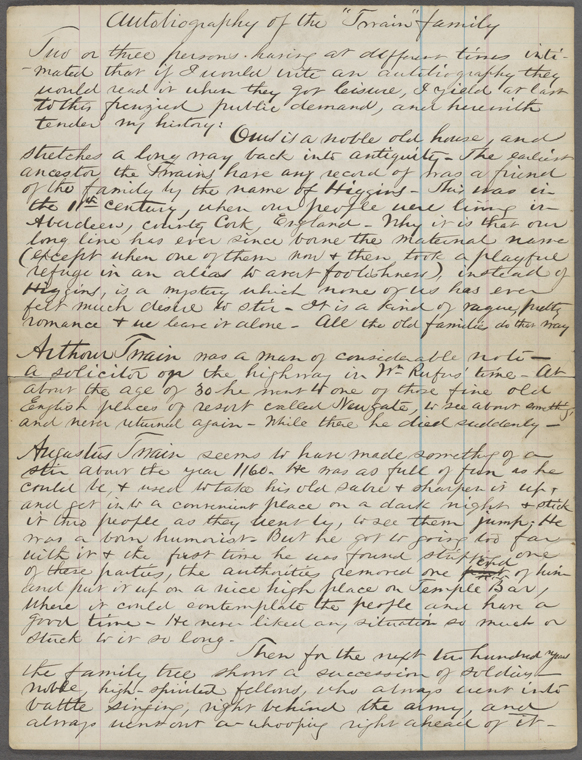 Autobiography of the "Twain" family
Two or three persons having at different times inti-
-mated that if I would write an autobiography they
would read it when they got leisure, I yield at last
to this frenzied public demand, and herewith
tender my history:
Ours is a noble old house, and
stretches a long way back into antiquity - The earliest
ancestor the Twains have any record of was a friend
of the family by the name of Higgins - This was in
the 11th century, when our people were living in
Aberdeen, county Cork, England - Why it is that our
long line has ever since borne the maternal name
(except when one of them now & then took a playful
refuge in an alias to avert foolishness) instead of
Higgins, is a mystery which none of us has ever
felt much desire to stir - It is a kind of vague, pretty
romance & we leave it alone - All the old families do that way
Arthour Twain was a man of considerable note -
a solicitor on the highway in Wm Rufus' time - At
about the age of 30 he went to one of those fine old
English places of resort called Newgate, to see about something,
and never returned again - While there he died suddenly -
Augustus Twain seems to have made something of a
stir about the year 1160. He was as full of fun as he
could be, & used to take his old sabre & sharpen it up,
and get into a convenient place on a dark night & stick
it thro people as they went by, to see them jump; He
was a born humorist - But he got to going too far
with it & the first time he was found stripping one
of these parties, the authorities removed one end of him
and put it up on a nice high place on Temple Bar,
where it could contemplate the people and have a
good time - He never liked any situation so much or
stuck to it so long -
Then for the next two hundred years
the family tree shows a succession of soldiers -
noble, high-spirited fellows, who always went into
battle singing, right behind the army, and
always went out a-whooping right ahead of it -